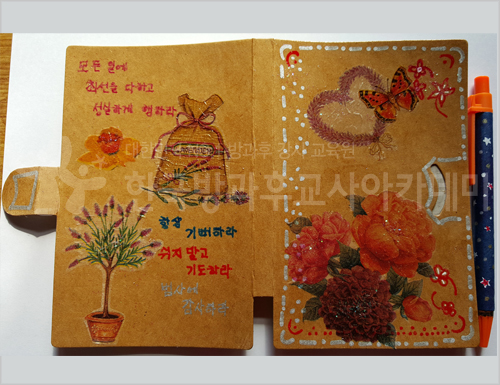 모든 일에
최선을 다하고
성실하게 행하라
대한민국 방과후 강사 교육원
한국방과후교사아카데미
항상
기뻐하라
쉬지 말고
기도하라
범사에
감사하라